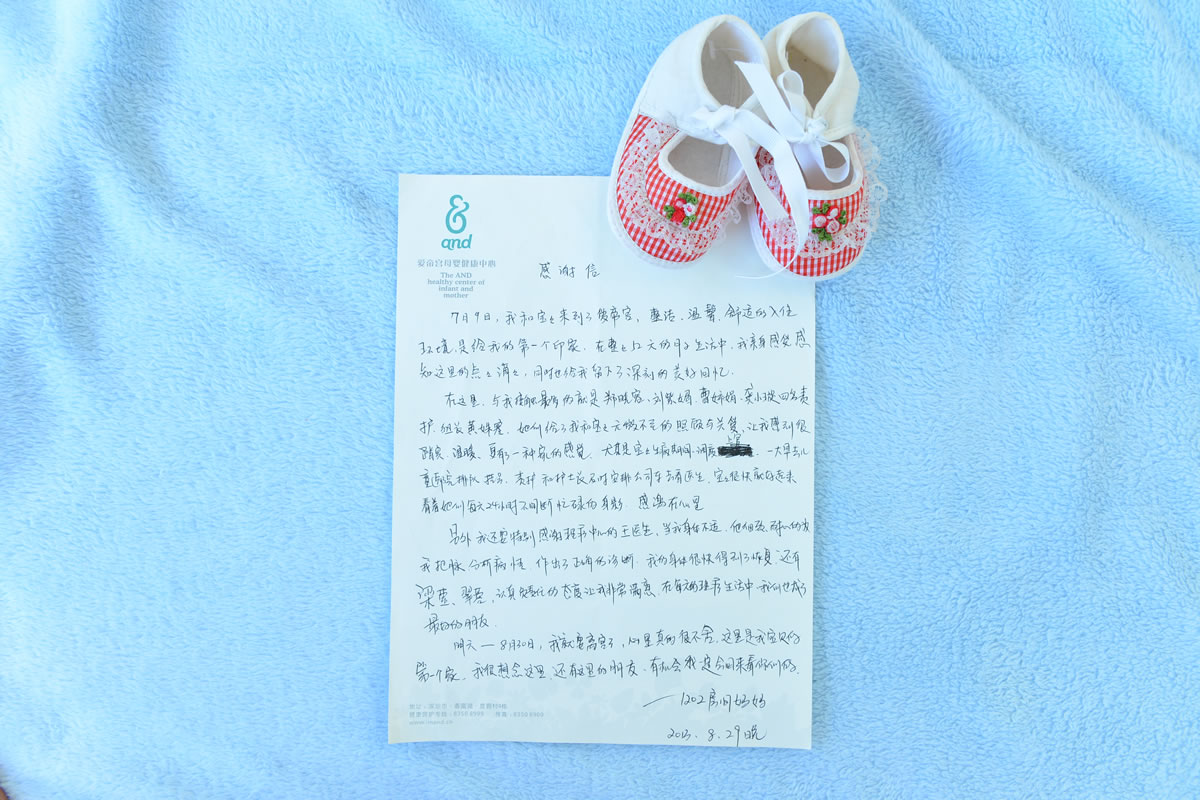 &
and
爱帝宫母婴健康中心
The AND
healthy center of
infant and
mother
感谢信
7月9日，我和宝宝来到了爱帝宫，整洁、温馨、舒适的入住
环境，是给我的第一个印象。在整整52天的月子生活中，我亲身感觉感
知这里的点点滴滴，同时也给我留下了深刻的美好回忆。
在这里，与我接触最多的就是 四名责
护，组长黄 她们给了我和宝宝无微不至的照顾与关爱，让我得到很
温暖，更有了一种家的感觉。尤其是宝宝生病期间， 一大早去儿
童医院排队挂号，责护和护士长及时安排公司车去看医生，宝宝很快就好起来
看着她们每天24小时不间断忙碌的身影，感激在心里
另外我还要特别感谢 中心的王医生，当我身体不适，他细致、耐心的为
我把脉分析病情，作出了正确的诊断，我的身体很快得到了恢复，还有
梁莹、翠 ，认真负责任的态度让我非常满意，在每天的 生活中我们也成了
最好的朋友。
明天—8月30日，我就要离宫了，心里真的很不舍，这里是我宝贝的
第一个家，我很想念这里，还有这里的朋友，有机会我定会回来看你们的。
——1202房间妈妈
2013.8.29晚
8358 8989
8358 8989
www.imand.cn